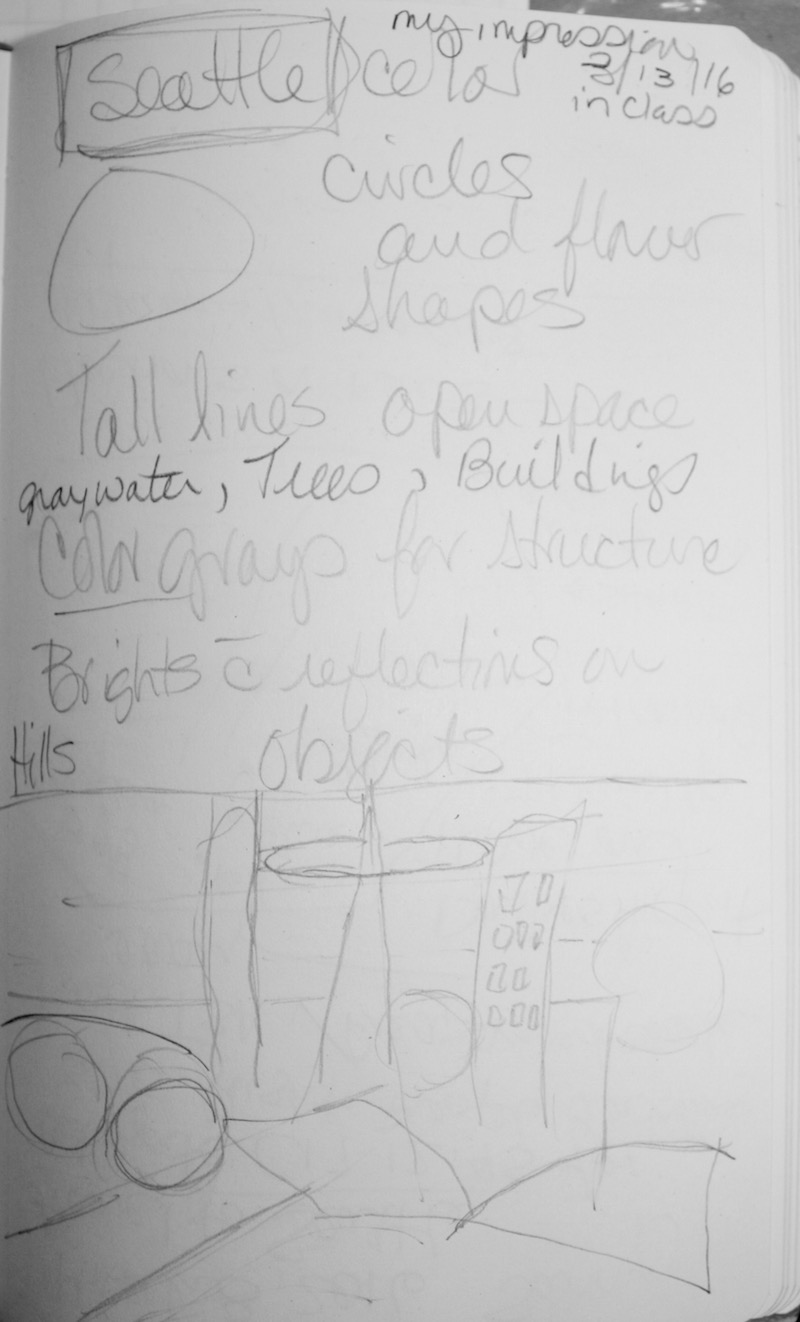 my impression
Seattle color
3/13/16
in class
circles
and flower
shapes
Tall lines open space
gray water, Trees, Buildings
Color grays for structure
Brights c̄ reflections on
Hills objects